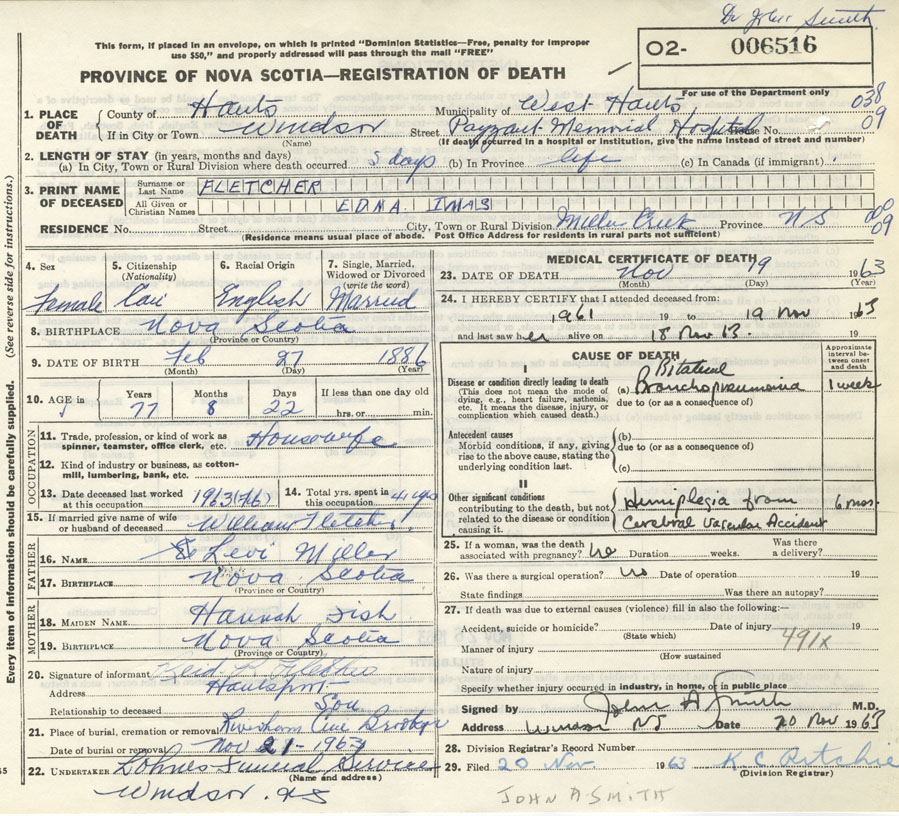 Dr John Smith
This form, if placed in an envelope, on which is printed "Dominion Statistics—Free, penalty for improper
use $50," and properly addressed will pass through the mail "FREE"
O2- 006516
PROVINCE OF NOVA SCOTIA—REGISTRATION OF DEATH
For use of the Department only
1. PLACE OF DEATH County of Hants Municipality of West Hants 038
If in City or Town Windsor Street Payzant Memorial Hospital House No. 09
(Name) (If death occurred in a hospital or institution, give the name instead of street and number)
2. LENGTH OF STAY (in years, months and days)
(a) In City, Town or Rural Division where death occurred 5 days (b) In Province life (c) In Canada (if immigrant)
3. PRINT NAME OF DECEASED Surname or Last Name FLETCHER
All Given or Christian Names EDNA IMAS
RESIDENCE No. Street City, Town or Rural Division Miller Creek Province NS 09
(Residence means usual place of abode. Post Office Address for residents in rural parts not sufficient)
(See reverse side for instructions.)
Every item of information should be carefully supplied.
4. Sex 5. Citizenship (Nationality) 6. Racial Origin 7. Single, Married, Widowed or Divorced (write the word)
Female Can English Married
8. BIRTHPLACE Nova Scotia
(Province or Country)
9. DATE OF BIRTH Feb 27 1886
(Month) (Day) (Year)
10. AGE in Years Months Days If less than one day old
77 8 22 hrs. or min.
OCCUPATION
11. Trade, profession, or kind of work as spinner, teamster, office clerk, etc. Housewife
12. Kind of industry or business, as cotton-mill, lumbering, bank, etc.
13. Date deceased last worked at this occupation 1963 14. Total yrs. spent in this occupation 41 yrs
15. If married give name of wife or husband of deceased William Fletcher
FATHER
16. NAME Levi Miller
17. BIRTHPLACE Nova Scotia
(Province or Country)
MOTHER
18. MAIDEN NAME Hannah Fish
19. BIRTHPLACE Nova Scotia
(Province or Country)
20. Signature of informant Fletcher
Address Hantsport
Relationship to deceased Son
21. Place of burial, cremation or removal Brooklyn
Date of burial or removal Nov 21-1963
22. UNDERTAKER Lohnes Funeral Service
(Name and address)
Windsor. NS
MEDICAL CERTIFICATE OF DEATH
23. DATE OF DEATH Nov 19 1963
(Month) (Day) (Year)
24. I HEREBY CERTIFY that I attended deceased from:
1961 19 to 19 Nov 1963
and last saw her alive on 18 Nov 63. 19
CAUSE OF DEATH
Approximate interval between onset and death
I
Bilateral
Disease or condition directly leading to death (a) Bronchopneumonia 1 week
(This does not mean the mode of dying, e.g., heart failure, asthenia, etc. It means the disease, injury, or complication which caused death.) due to (or as a consequence of)
Antecedent causes (b)
Morbid conditions, if any, giving rise to the above cause, stating the underlying condition last. due to (or as a consequence of)
(c)
II
Other significant conditions contributing to the death, but not related to the disease or condition causing it. Hemiplegia from 6 mos.
Cerebral Vascular Accident
25. If a woman, was the death associated with pregnancy? no Duration weeks. Was there a delivery?
26. Was there a surgical operation? no Date of operation 19
State findings Was there an autopsy?
27. If death was due to external causes (violence) fill in also the following:—
Accident, suicide or homicide? Date of injury 19
(State which)
491X
Manner of injury
(How sustained)
Nature of injury
Specify whether injury occurred in industry, in home, or in public place
Signed by John A Smith M.D.
Address Windsor NS Date 20 Nov 1963
28. Division Registrar's Record Number
29. Filed 20 Nov. 1963 K. C. Ritchie
(Division Registrar)
JOHN A SMITH